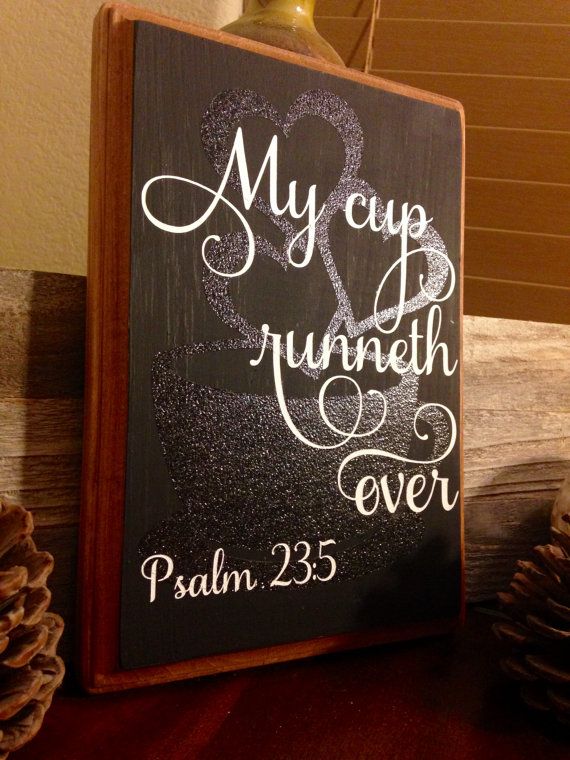 My cup
runneth
over
Psalm 23:5